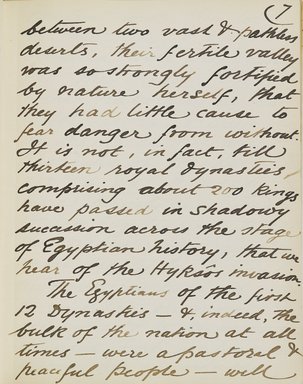 (7
between two vast & pathless
deserts, their fertile valley
was so strongly fortified
by nature herself, that
they had little cause to
fear danger from without.
It is not, in fact, till
thirteen royal dynasties,
comprising about 200 kings
have passed in shadowy
succession across the stage
of Egyptian history, that we
hear of the Hyksos invasion.
The Egyptians of the first
12 Dynasties – &, indeed, the
bulk of the nation at all
times – were a pastoral &
peaceful people – well